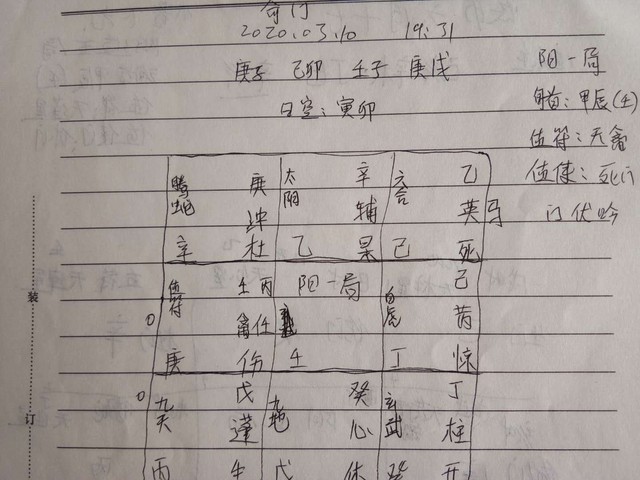 奇门
2020.03.10 19:31
庚子 己卯 壬子 庚戌 阳一局
日空：寅卯 旬首：甲辰(壬)
值符：天禽
值使：死门
门伏吟
螣蛇 庚 太阴 辛 六合 乙
冲 辅 英 马
辛 杜 乙 杲 己 死
值符 壬丙 阳一局 白虎 己
0 禽任 芮
庚 伤 壬 丁 惊
0 九天 戊 九地 癸 玄武 丁
蓬 心 柱
丙 生 戊 休 癸 开
装
订